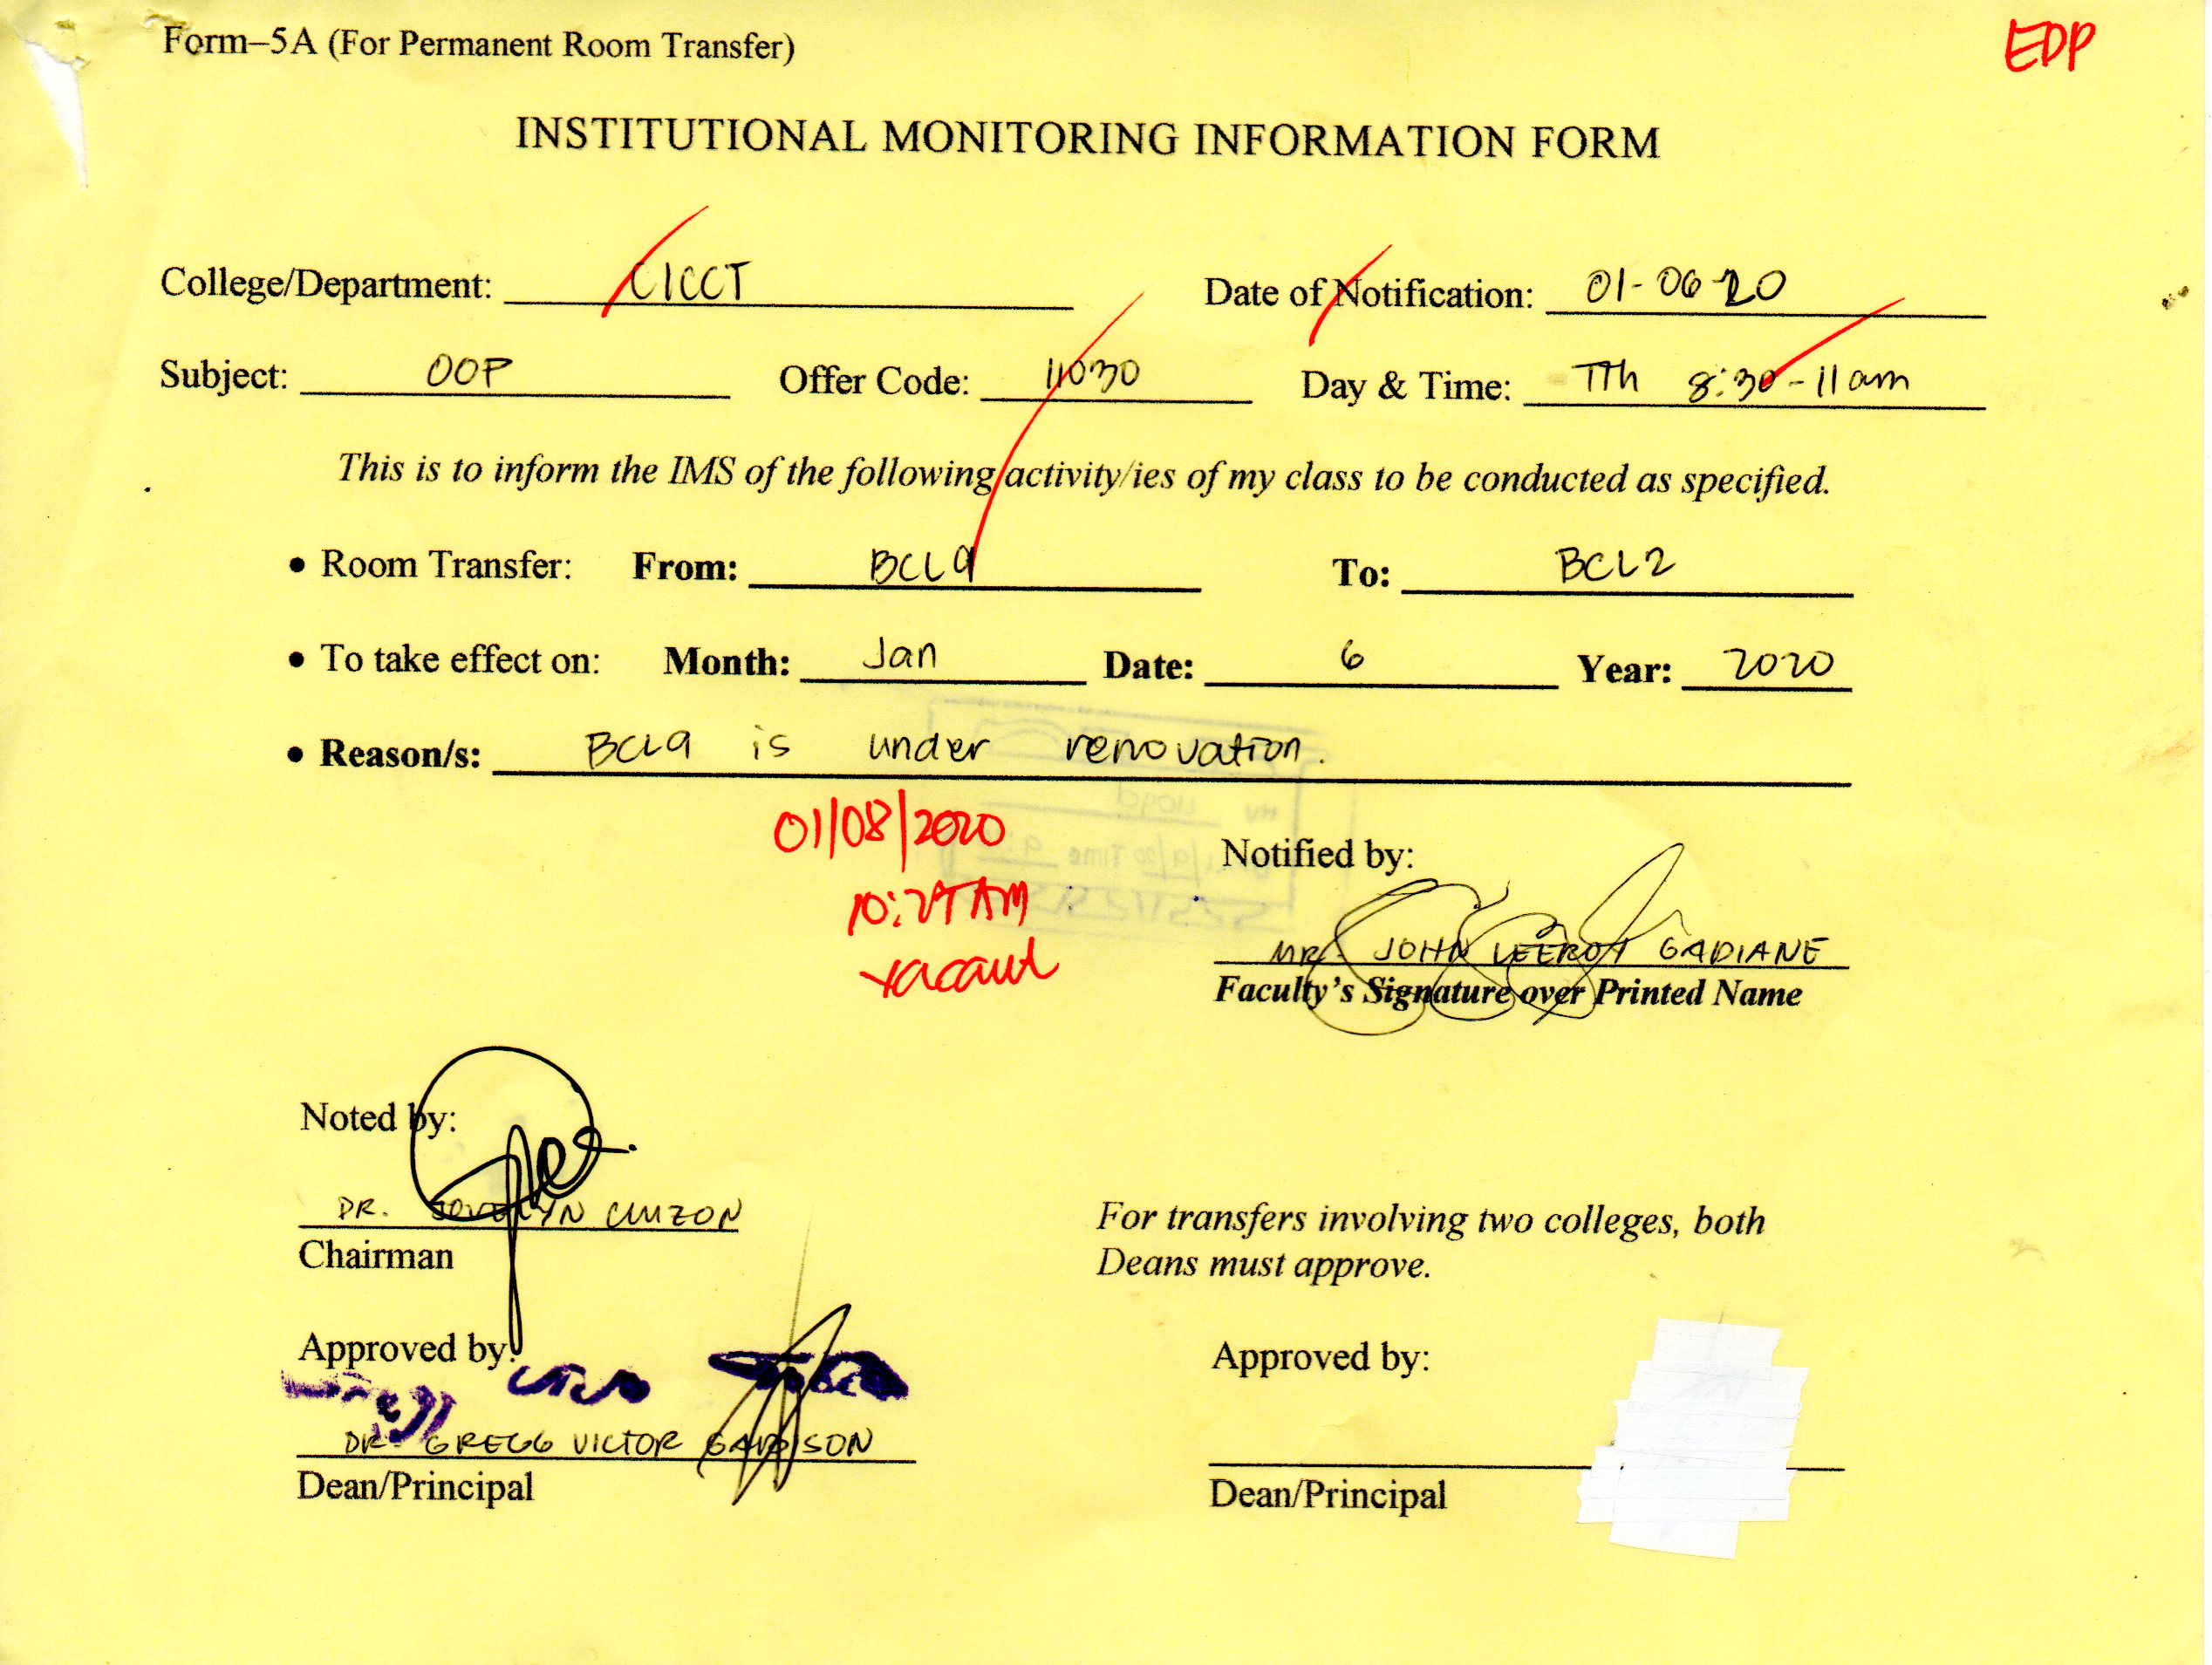 Form–5A (For Permanent Room Transfer)
EDP
INSTITUTIONAL MONITORING INFORMATION FORM
College/Department: CICCT Date of Notification: 01-06-20
Subject: OOP Offer Code: 11030 Day & Time: TTh 8:30-11am
This is to inform the IMS of the following activity/ies of my class to be conducted as specified.
• Room Transfer: From: BCL9 To: BCL2
• To take effect on: Month: Jan Date: 6 Year: 2020
• Reason/s: BCL9 is under renovation.
01/08/2020
10:29 AM
vacant
Notified by:
MR. JOHN LEEROY GADIANE
Faculty's Signature over Printed Name
Noted by:
DR. JOVELYN CUIZON
Chairman
For transfers involving two colleges, both
Deans must approve.
Approved by:
DR. GREGG VICTOR GABISON
Dean/Principal
Approved by:
Dean/Principal